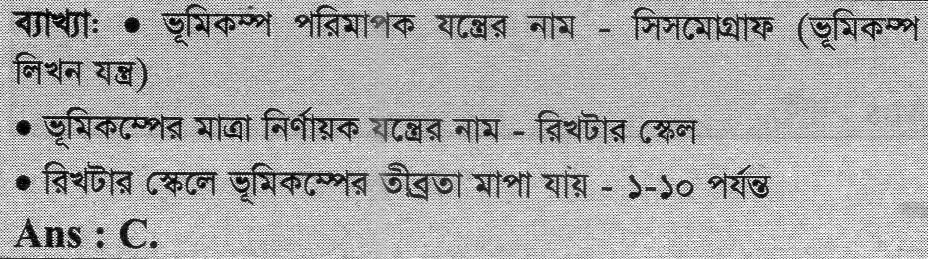 ব্যাখ্যা: ● ভূমিকম্প পরিমাপক যন্ত্রের নাম - সিসমোগ্রাফ (ভূমিকম্প
লিখন যন্ত্র)
● ভূমিকম্পের মাত্রা নির্ণায়ক যন্ত্রের নাম - রিখটার স্কেল
● রিখটার স্কেলে ভূমিকম্পের তীব্রতা মাপা যায় - ১-১০ পর্যন্ত
Ans : C.